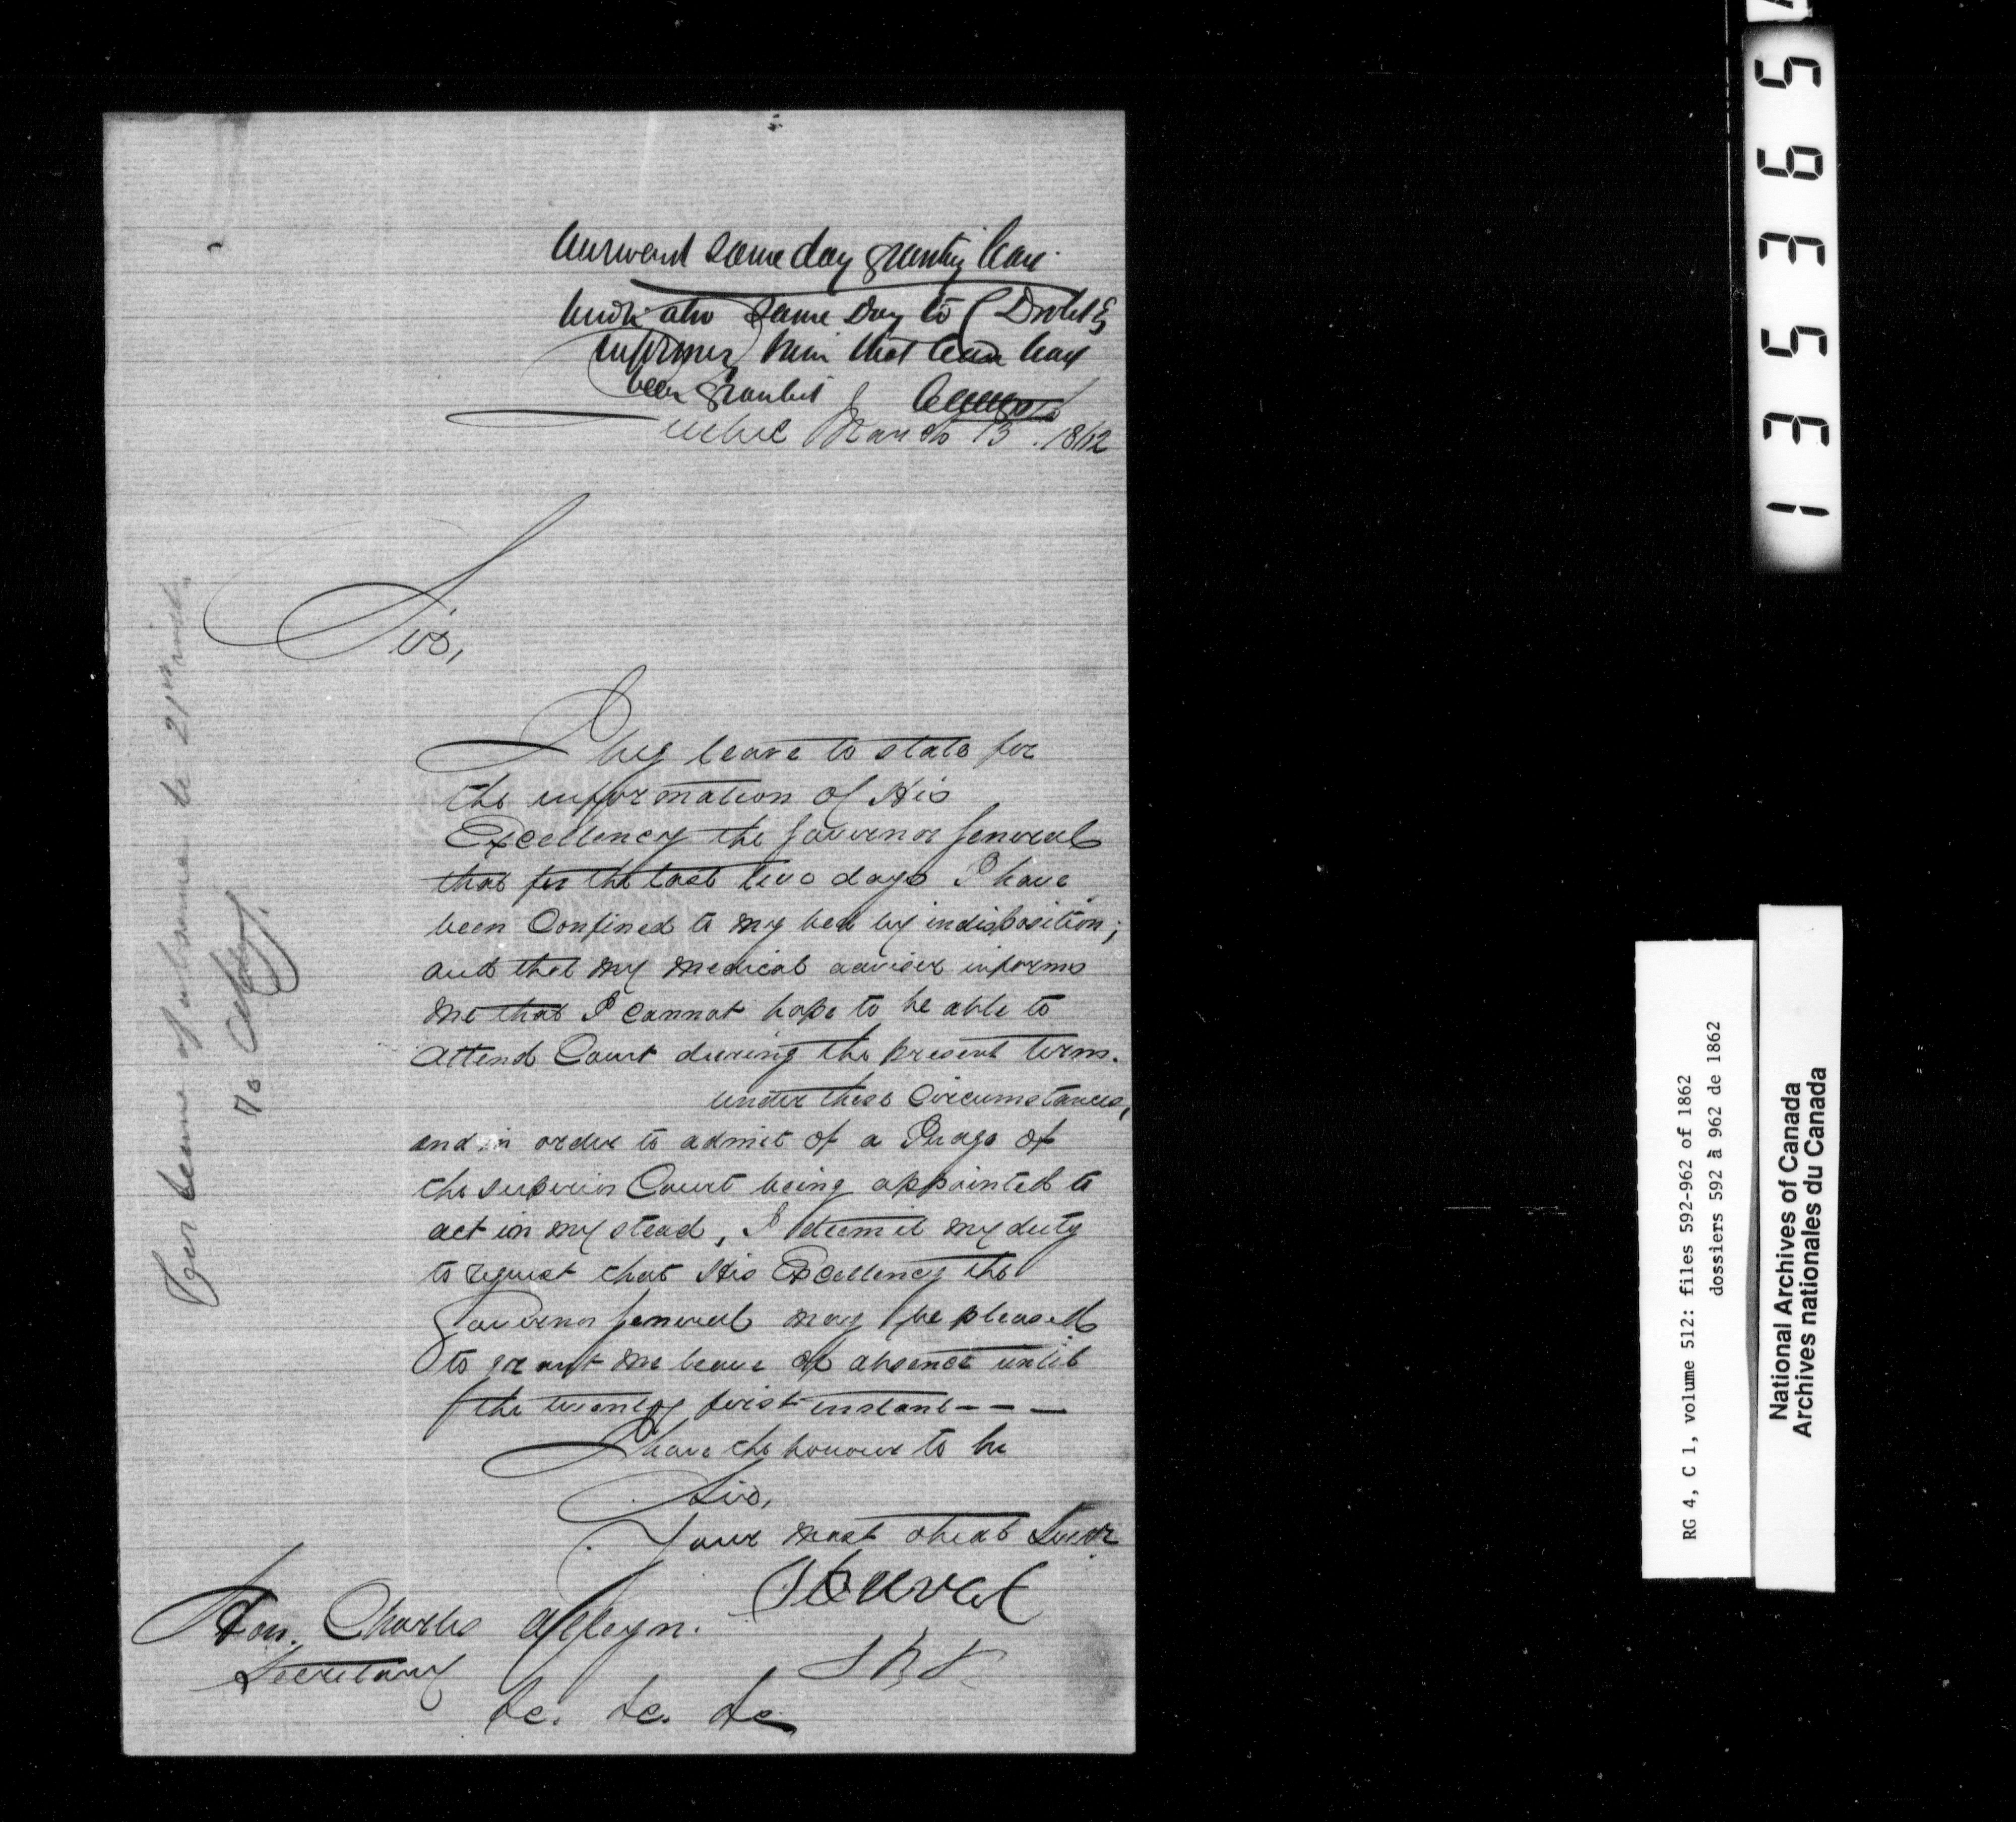 Answered same day granting leave
wrote also same Day to Drolet Es
informing him that leave had
been granted
Quebec March 13. 1862
Sir,
I beg leave to state for
the information of His
Excellency the Governor General
that for the last two days I have
been confined to my bed by indisposition;
and that my medical adviser informs
me that I cannot hope to be able to
attend Court during the present term.
under these circumstances,
and in order to admit of a Judge of
the Superior Court being appointed to
act in my stead, I deem it my duty
to request that His Excellency the
Governor General may be pleased
to grant me leave of absence until
the twenty first instant - - -
I have the honour to be
Sir,
Your most obedt Servt
Duval
Hon. Charles Alleyn.
Secretary
&c. &c. &c
leave of absence to 21st inst.
135365
RG 4, C 1, volume 512: files 592-962 of 1862
dossiers 592 à 962 de 1862
National Archives of Canada
Archives nationales du Canada